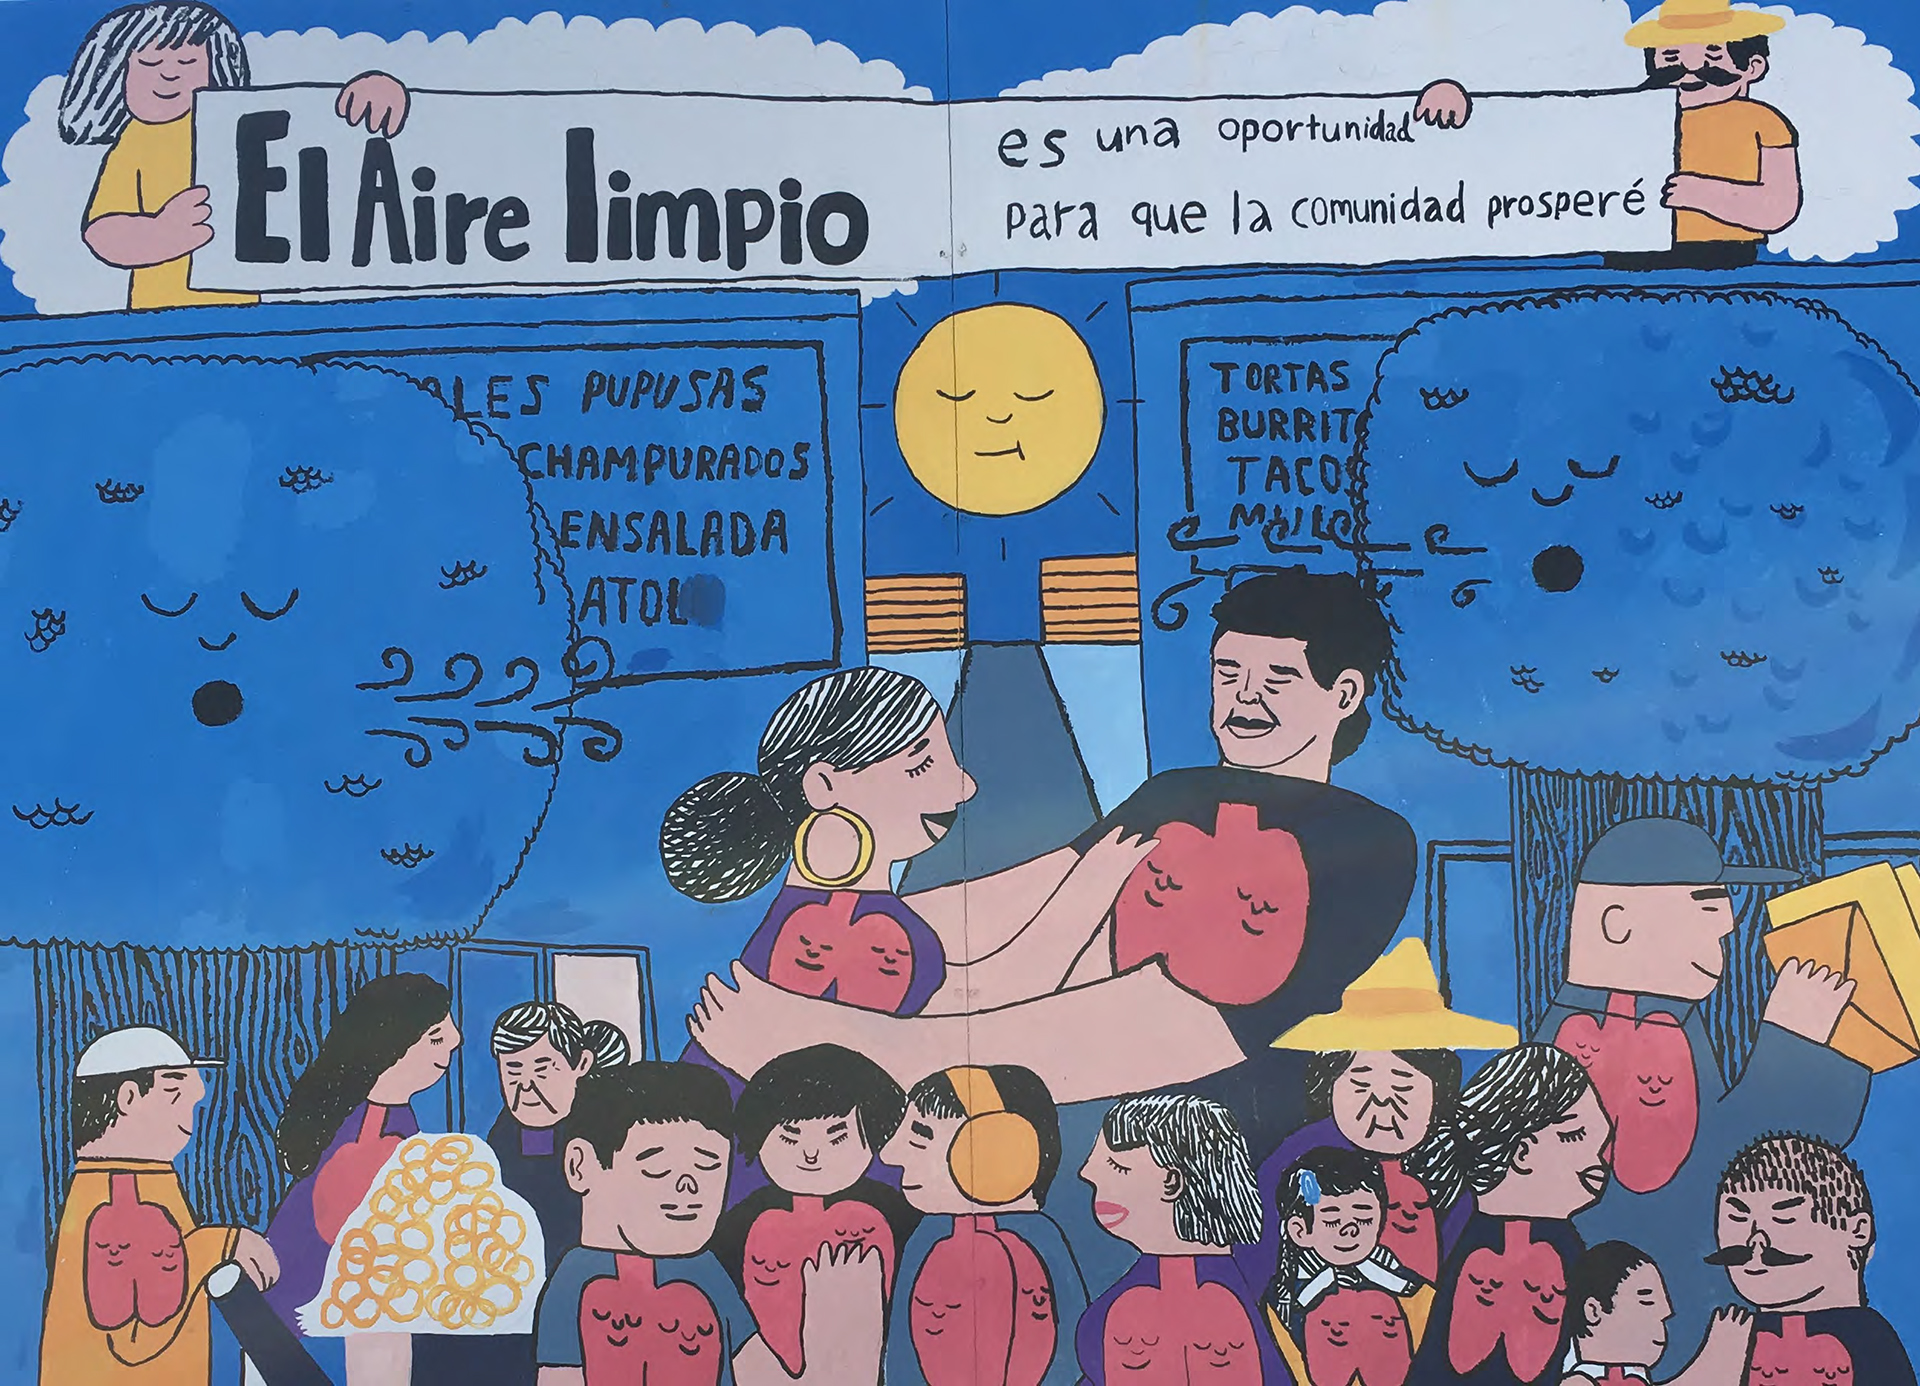 El Aire limpio
es una oportunidad
para que la comunidad prosperé
ALES PUPUSAS
CHAMPURADOS
ENSALADA
ATOL
TORTAS
BURRITO
TACOS